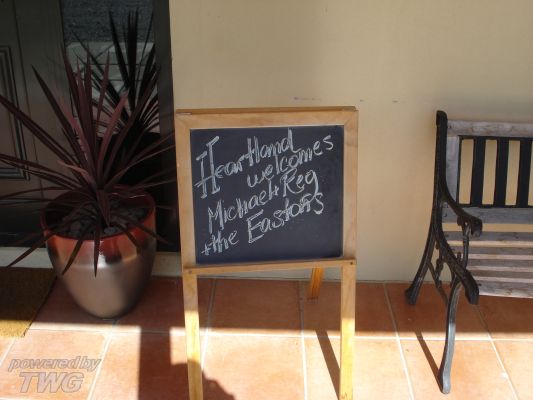 Heartland
welcomes
Michael + Reg
+ the Eastons
powered by
TWG